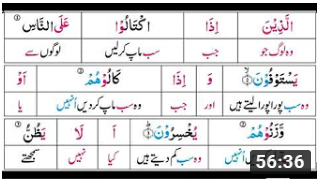 الَّذِيْنَ اِذَا اكْتَالُوْا عَلَى النَّاسِ
وہ لوگ جو جب سب ماپ کر لیں لوگوں سے
يَسْتَوْفُوْنَ وَ اِذَا كَالُوْهُمْ اَوْ
وہ سب پورا پورا لیتے ہیں اور جب وہ سب ماپ کر دیں انہیں یا
وَّزَنُوْهُمْ يُخْسِرُوْنَ اَ لَا يَظُنُّ
انہیں وہ سب کم دیتے ہیں کیا نہیں سمجھتے
56:36